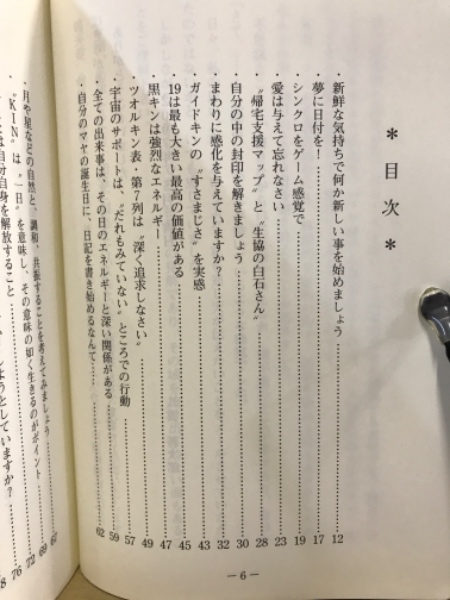 ＊目次＊
・新鮮な気持ちで何か新しい事を始めましょう……12
・夢に日付を！……17
・シンクロをゲーム感覚で……19
・愛は与えて忘れなさい……23
・〝帰宅支援マップ〟と〝生協の白石さん〟……28
・自分の中の封印を解きましょう……30
・まわりに感化を与えていますか？……32
・ガイドキンの〝すさまじさ〟を実感……43
・19は最も大きい最高の価値がある……45
・黒キンは強烈なエネルギー……47
・ツオルキン表・第7列は〝深く追求しなさい〟……49
・宇宙のサポートは、〝だれもみていない〟ところでの行動……57
・全ての出来事は、その日のエネルギーと深い関係がある……59
・自分のマヤの誕生日に、日記を書き始めるなんて……62
・月や星などの自然と、調和、共振することを考えてみましょう……67
〝KIN〟は〝一日〟を意味し、その意味の如く生きるのがポイント……69
は自分自身を解放すること……72
ようとしていますか？……76
8
―6―